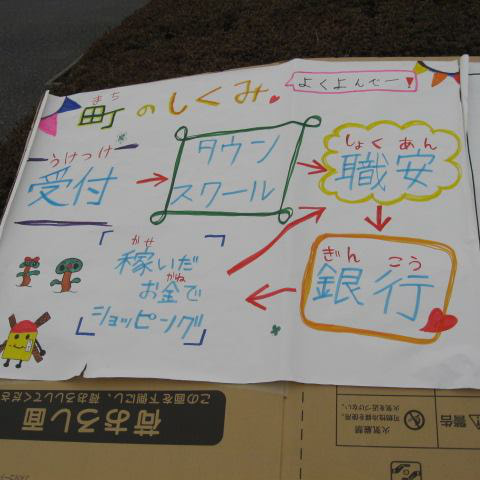 まち
町のしくみ
よくよんでー!
うけつけ
受付
タウン
スクール
しょくあん
職安
ぎんこう
銀行
かせ
稼いだ
かね
お金で
ショッピング
荷おろし面
この面を下側にし、荷おろししてくださ
警告
火気厳禁